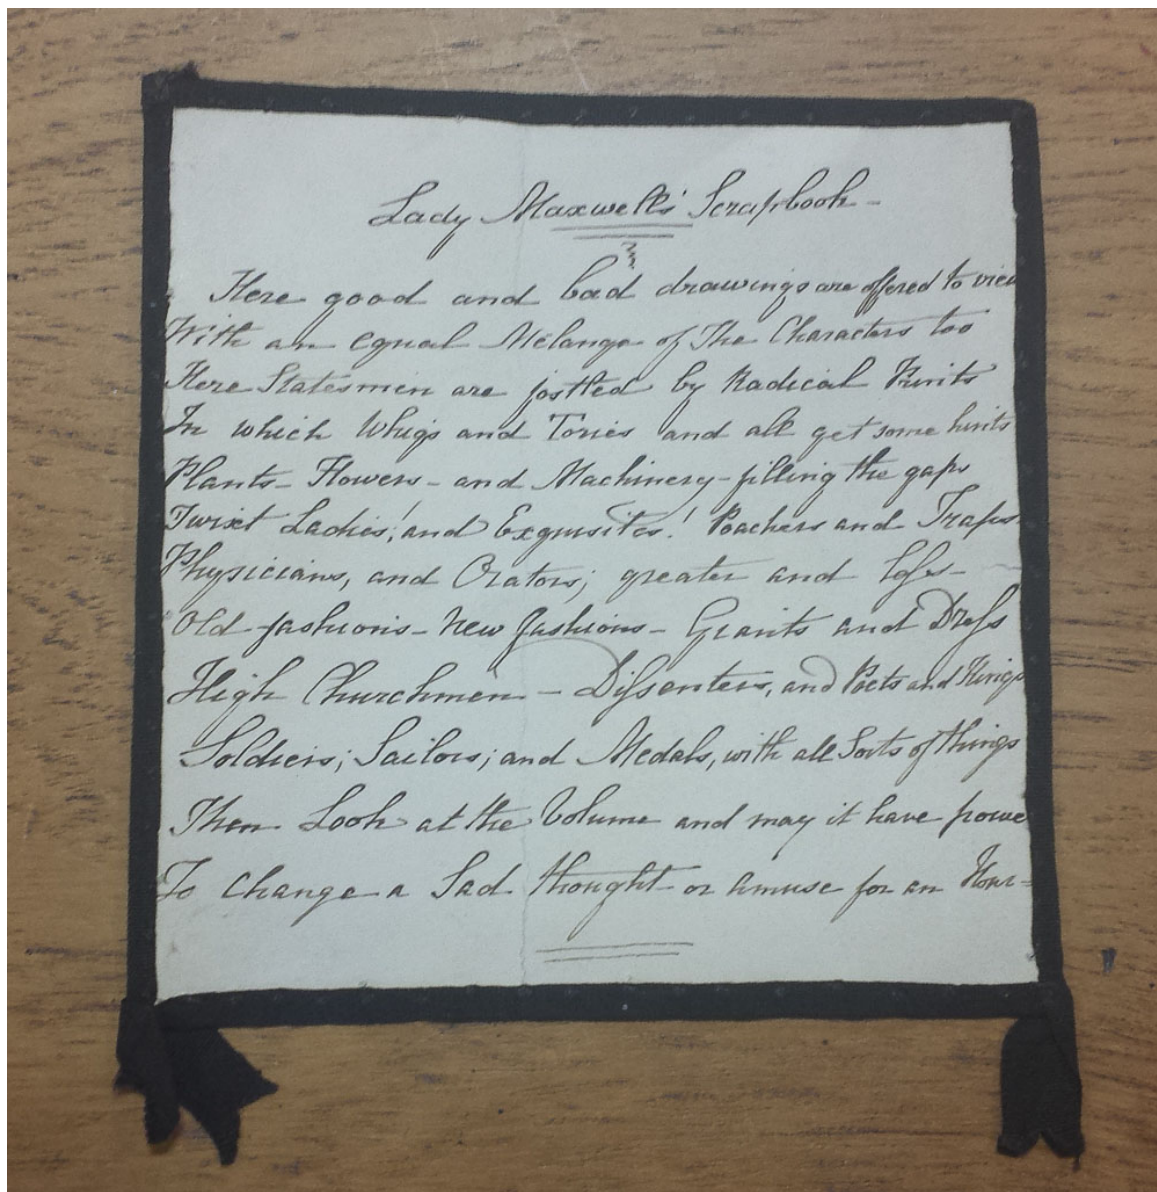 Lady Maxwell's Scrapbook -
Here good and bad drawings are offered to view
With an equal Mélange of The Characters too
Here Statesmen are jostled by Radical Prints
In which Whigs and Tories and all get some hints
Plants - Flowers - and Machinery - filling the gaps
Twixt Ladies! and Exquisites! Poachers and Traps.
Physicians, and Orators; greater and less -
Old fashions - New fashions - Giants and Dress
High Churchmen - Dissenters, and Poets and Kings
Soldiers; Sailors; and Medals, with all Sorts of things
Then Look at the Volume and may it have powe
To change a Sad thought or amuse for an Hour -